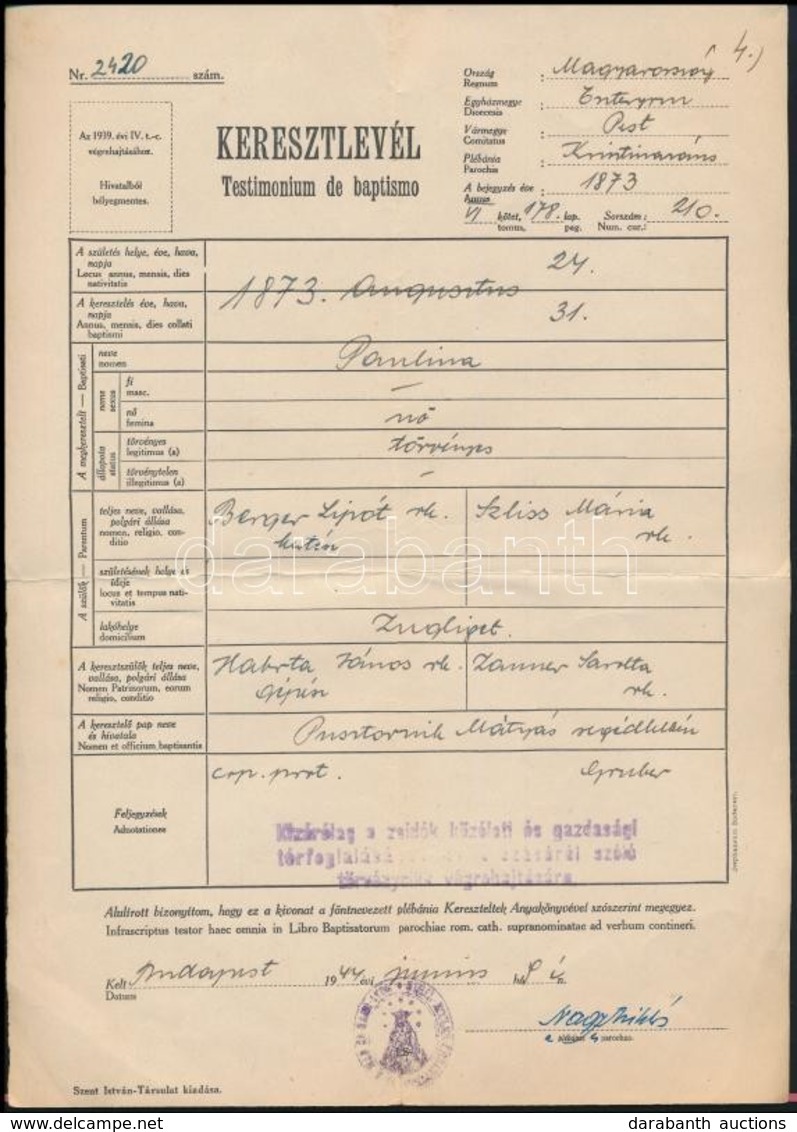 4.)
Nr. 2420 szám.
Ország : Magyarország
Regnum
Egyházmegye :
Dioecesis
Vármegye : Pest
Comitatus
Plébánia : Krisztinaváros
Parochia
A bejegyzés éve : 1873
Annus
VI kötet, 178. lap. Sorszám: 210.
tomus, pag. Num. cur.:
Az 1939. évi IV. t.-c.
végrehajtásához.
Hivatalból
bélyegmentes.
KERESZTLEVÉL
Testimonium de baptismo
A születés helye, éve, hava,
napja
Locus annus, mensis, dies
nativitatis
24.
1873. Augusztus
A keresztelés éve, hava,
napja
Annus, mensis, dies collati
baptismi
31.
A megkeresztelt — Baptisati
neve
nomen
Paulina
neme
sexus
fi
masc.
–
nő
femina
nő
állapota
status
törvényes
legitimus (a)
törvényes
törvénytelen
illegitimus (a)
–
A szülők — Parentum
teljes neve, vallása,
polgári állása
nomen, religio, con-
ditio
Berger Lipót rk.
Szliss Mária
rk.
születésének helye és
ideje
locus et tempus nati-
vitatis
lakóhelye
domicilium
Zugliget.
A keresztszülők teljes neve,
vallása, polgári állása
Nomen Patrinorum, eorum
religio, conditio
Habrta János rk.
gépész
Zanner Sarolta
rk.
A keresztelő pap neve
és hivatala
Nomen et officium baptisantis
Pusztornik Mátyás segédlelkész
Feljegyzések
Adnotationes
cop. prot. Gruber
Kizárólag a zsidók közéleti és gazdasági
térfoglalásának szóló
törvénycikk végrehajtására
Stephaneum Budapest.
darabanth
Alulírott bizonyítom, hogy ez a kivonat a föntnevezett plébánia Kereszteltek Anyakönyvével szószerint megegyez.
Infrascriptus testor haec omnia in Libro Baptisatorum parochiae rom. cath. supranominatae ad verbum contineri.
Kelt Budapest 1944 évi június hó 8 én.
Datum
Nagy Miklós
plébános parochus.
Szent István-Társulat kiadása.
darabanth auctions